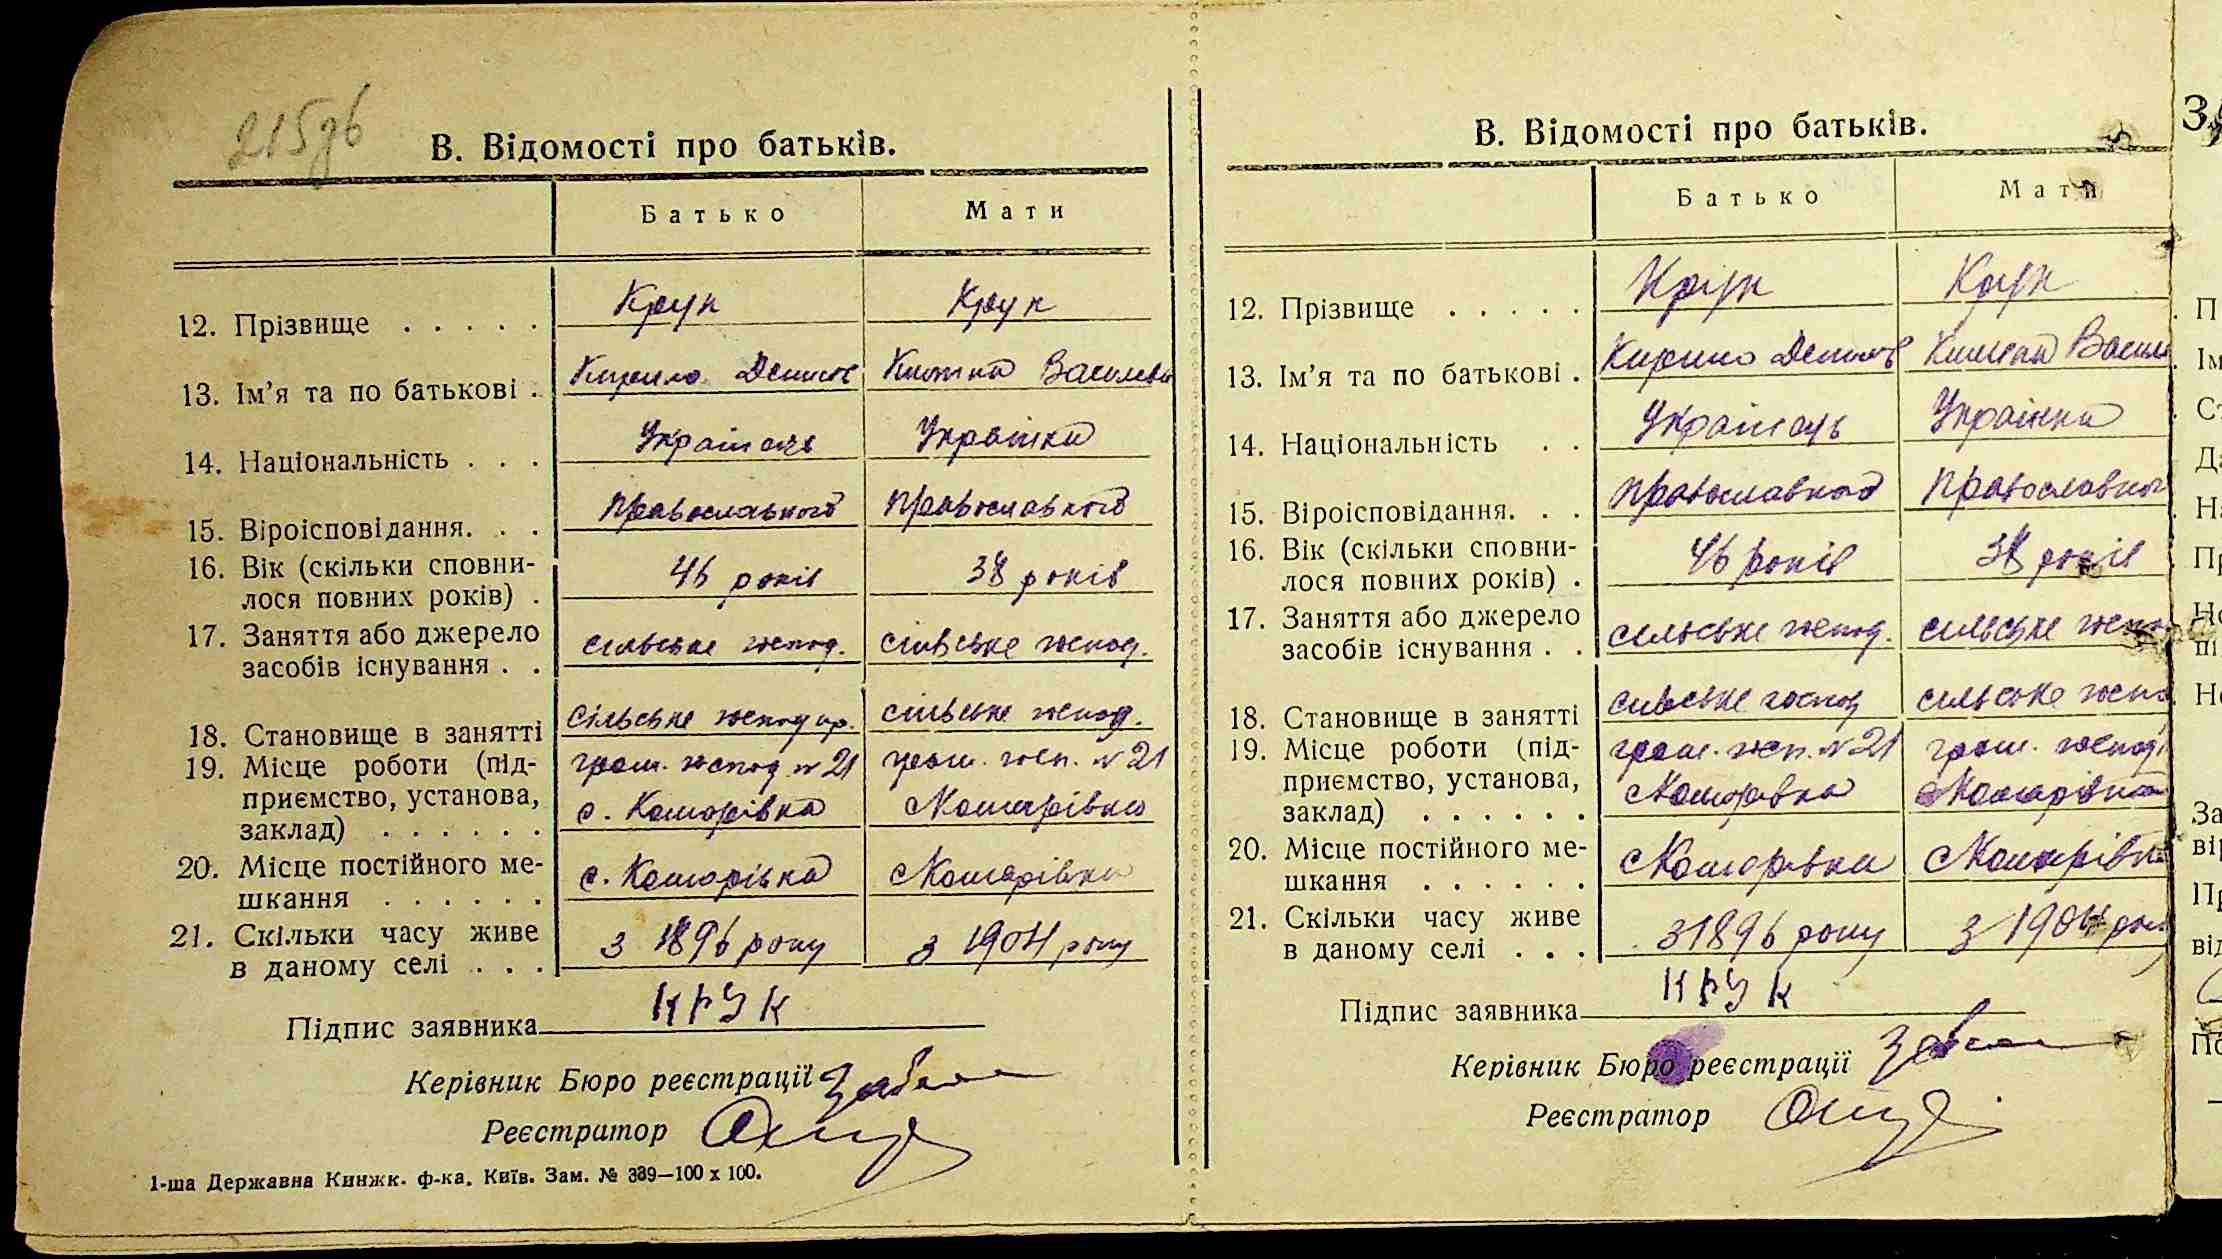 215 зв
В. Відомості про батьків.
Батько Мати
12. Прізвище . . . . . Крук Крук
13. Ім'я та по батькові . Кирило Денисов Василев
14. Національність . . . Українець Українка
15. Віроісповідання. . . Православного Православного
16. Вік (скільки сповни-
лося повних років) . 46 років 38 років
17. Заняття або джерело
засобів існування . . сільське господ. сільське господ.
18. Становище в занятті сільське господар. сільське господ.
19. Місце роботи (під- гром. господ. № 21 гром. госп. № 21
приємство, установа, с. Комарівка с Комарівка
заклад) . . . . . .
20. Місце постійного ме-
шкання . . . . . . с. Комарівка с Комарівка
21. Скільки часу живе
в даному селі . . . з 1896 року з 1904 року
Підпис заявника КРУК
Керівник Бюро реєстрації
Реєстратор
1-ша Державна Книжк. ф-ка. Київ. Зам. № 339—100 x 100.
В. Відомості про батьків.
Батько Мати
12. Прізвище . . . . . Крук Крук
13. Ім'я та по батькові . Кирило Денисов Васил
14. Національність . . Українець Українка
15. Віроісповідання. . . Православного Православног
16. Вік (скільки сповни-
лося повних років) . 46 років 38 років
17. Заняття або джерело
засобів існування . . сільське господ. сільське госпо
18. Становище в занятті сільське господ сільське госпо
19. Місце роботи (під- гром. госп. № 21 гром. господ
приємство, установа, с Комарівка с Комарівка
заклад) . . . . . .
20. Місце постійного ме-
шкання . . . . . . с Комарівка с Комарівка
21. Скільки часу живе
в даному селі . . . з 1896 року з 1904 рок
Підпис заявника КРУК
Керівник Бюро реєстрації
Реєстратор